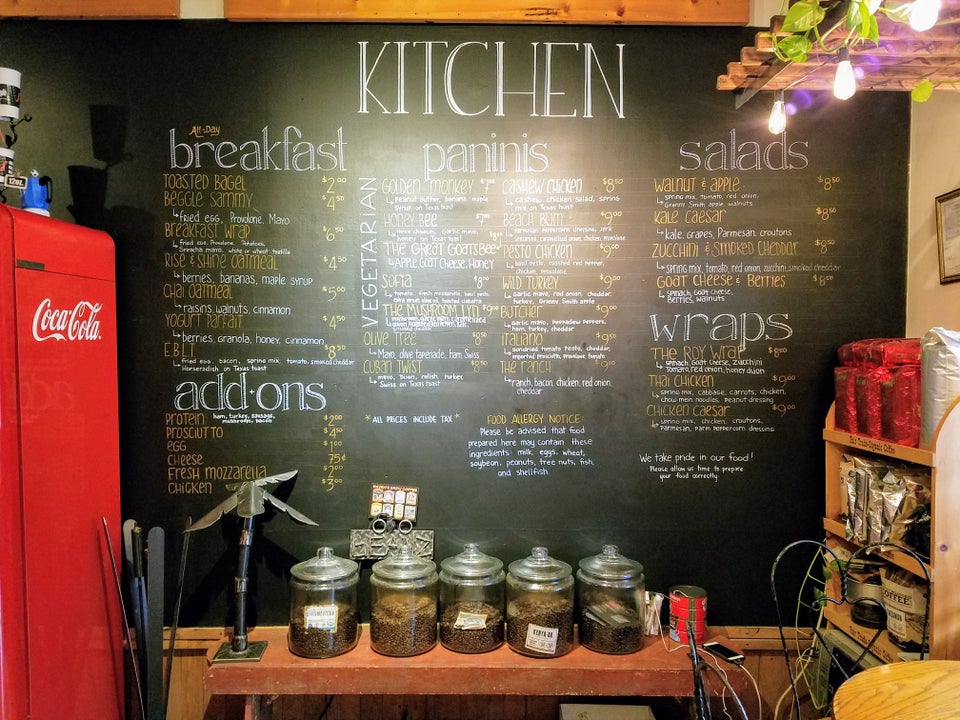 KITCHEN
All-Day
breakfast
TOASTED BAGEL $2.00
BEGGLE SAMMY $4.50
Fried egg, Provolone, Mayo
BREAKFAST WRAP $6.50
Fried egg, Provolone, Potatoes,
Sriracha mayo, white or wheat tortilla
RISE & SHINE OATMEAL $4.50
berries, bananas, maple syrup
CHAI OATMEAL $5.00
raisins, walnuts, cinnamon
YOGURT PARFAIT $4.50
berries, granola, honey, cinnamon
E.B.L.T $8.50
fried egg, bacon, spring mix, tomato, smoked cheddar
Horseradish on Texas toast
add-ons
PROTEIN ham, turkey, sausage, $2.00
mushroom, bacon
PROSCIUTTO $4.50
EGG $1.00
CHEESE 75¢
FRESH MOZZARELLA $2.00
CHICKEN $3.00
paninis
VEGETARIAN
GOLDEN MONKEY $7.00
Peanut butter, banana, maple
syrup on Texas toast
HONEY BEE $7.00
honey on Texas toast
THE GREAT GOATSBEE
APPLE, GOAT CHEESE, HONEY
SOFIA $8
THE MUSHROOM LYN $9.00
OLIVE TREE $8.50
Mayo, olive tapenade, ham, Swiss
CUBAN TWIST $8.50
mayo, Dijon, relish, turkey,
Swiss on Texas toast
CASHEW CHICKEN $8.50
cashew chicken salad, spring
mix on Texas toast
BEACH BUM $9.00
PESTO CHICKEN $9
basil pesto, roasted red pepper,
chicken, provolone
WILD TURKEY $9.00
garlic mayo, red onion, cheddar,
turkey, Granny Smith apple
BUTCHER $9.00
garlic mayo, Peppadew peppers,
ham, turkey, cheddar
ITALIANO $9.50
sundried tomato pesto, cheddar,
imported prosciutto, provolone, tomato
THE RANCH $9.00
ranch, bacon, chicken, red onion,
cheddar
*ALL PRICES INCLUDE TAX*
FOOD ALLERGY NOTICE:
Please be advised that food
prepared here may contain these
ingredients: milk, eggs, wheat,
soybean, peanuts, tree nuts, fish,
and shellfish.
salads
WALNUT & APPLE $8.50
spring mix, tomato, red onion,
Granny Smith apple, walnuts
KALE CAESAR $8.50
kale, grapes, Parmesan, croutons
ZUCCHINI & SMOKED CHEDDAR $8.50
spring mix, tomato, red onion, zucchini, smoked cheddar
GOAT CHEESE & BERRIES $8.50
spinach, goat cheese,
Berries, walnuts
wraps
THE ROY WRAP $8.00
spinach, goat cheese, zucchini
tomato, red onion, honey dijon
THAI CHICKEN $9.00
spring mix, cabbage, carrots, chicken,
chow mein noodles, Peanut dressing
CHICKEN CAESAR $9.00
spring mix, chicken, croutons,
Parmesan, parm peppercorn dressing
We take pride in our food!
Please allow us time to prepare
your food correctly.
Coca-Cola
12oz.
Fair Trade-Organic Coffee
COFFEE
KENYA AA